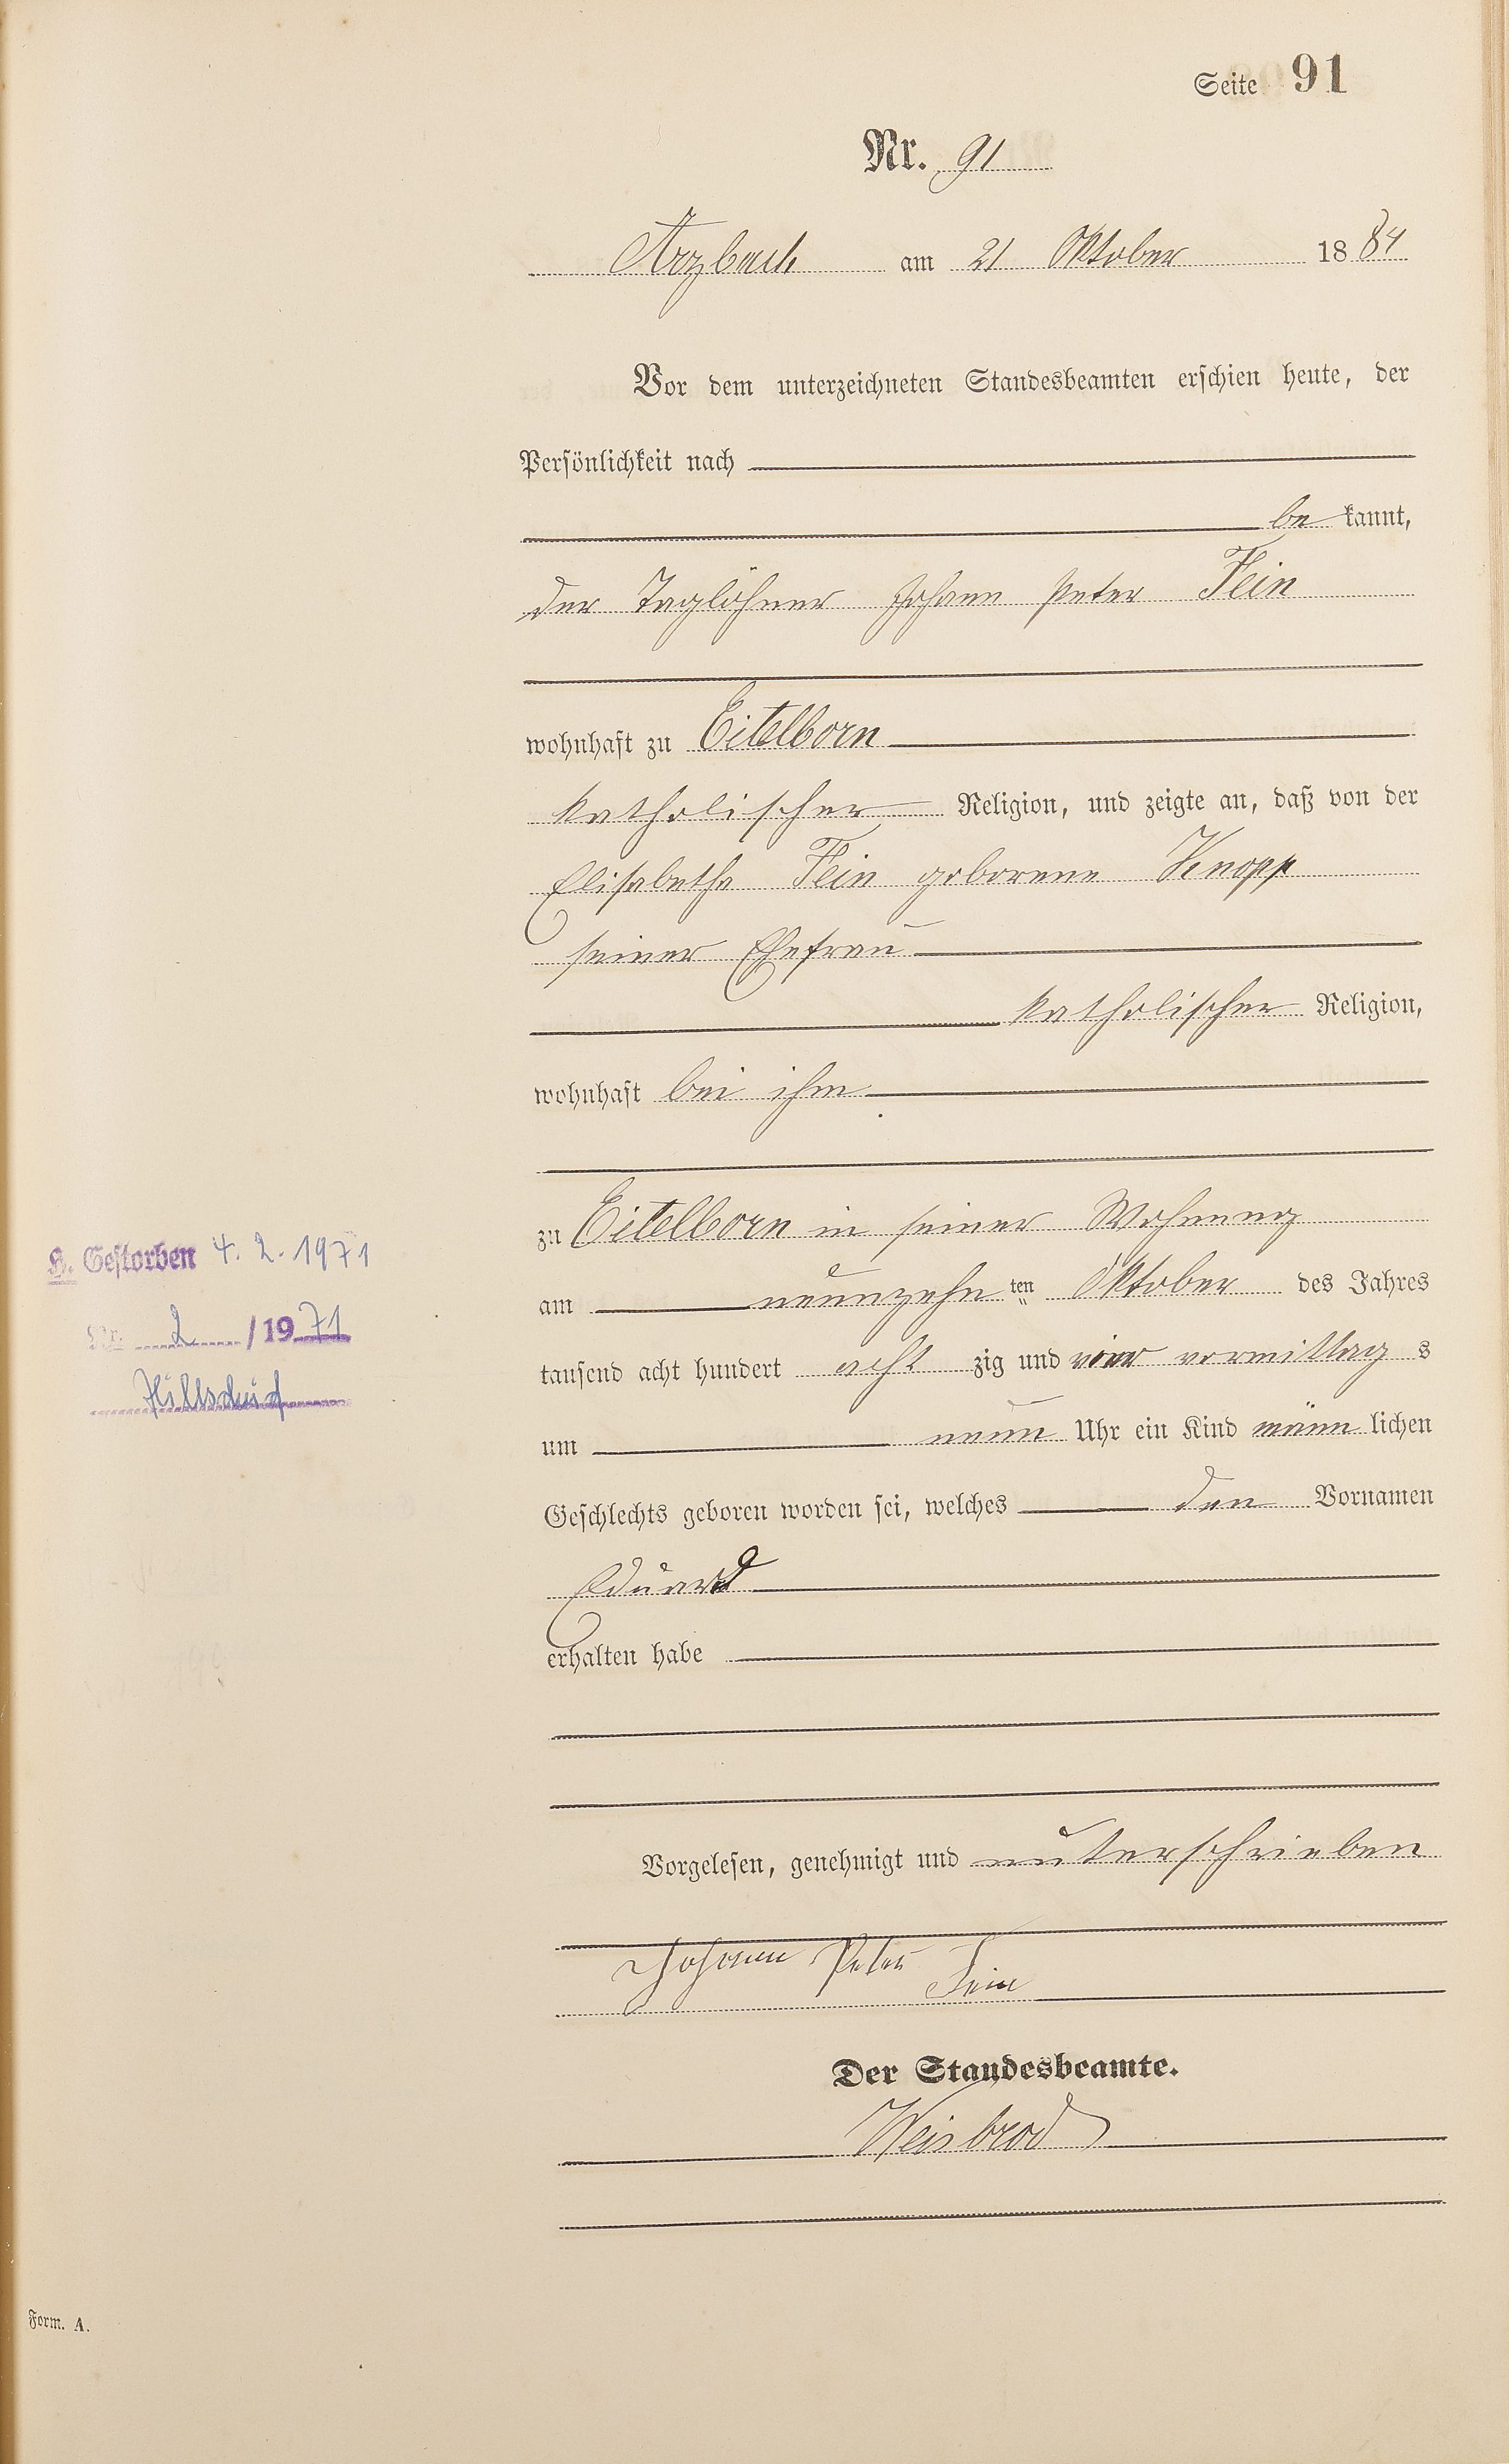 Seite 91
Nr. 91
Arzbach am 21 Oktober 1884
Vor dem unterzeichneten Standesbeamten erschien heute, der
Persönlichkeit nach
be kannt,
der Taglöhner Johann Peter Fein
wohnhaft zu Eitelborn
katholischer Religion, und zeigte an, daß von der
Elisabetha Fein geborene Knopp
seiner Ehefrau
katholischer Religion,
wohnhaft bei ihm
zu Eitelborn in seiner Wohnung
am neunzehn ten Oktober des Jahres
tausend acht hundert acht zig und vier vormittag s
um neun Uhr ein Kind männ lichen
Geschlechts geboren worden sei, welches den Vornamen
Eduard
erhalten habe
Vorgelesen, genehmigt und unterschrieben
Johann Peter Fein
Der Standesbeamte.
Weisbrod
H. Gestorben 4. 2. 1971
Nr. 2 / 1971
Hillscheid
Form. A.